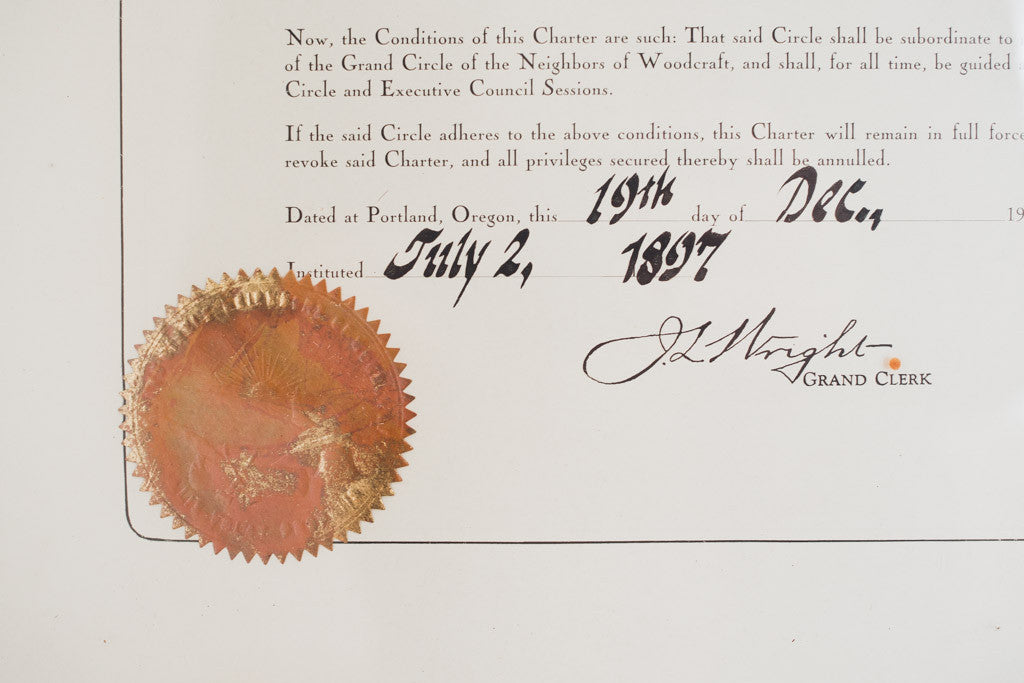 Now, the Conditions of this Charter are such: That said Circle shall be subordinate to
of the Grand Circle of the Neighbors of Woodcraft, and shall, for all time, be guided
Circle and Executive Council Sessions.
If the said Circle adheres to the above conditions, this Charter will remain in full force
revoke said Charter, and all privileges secured thereby shall be annulled.
Dated at Portland, Oregon, this 19th day of Dec., 19
Instituted July 2, 1897
J L Wright
GRAND CLERK